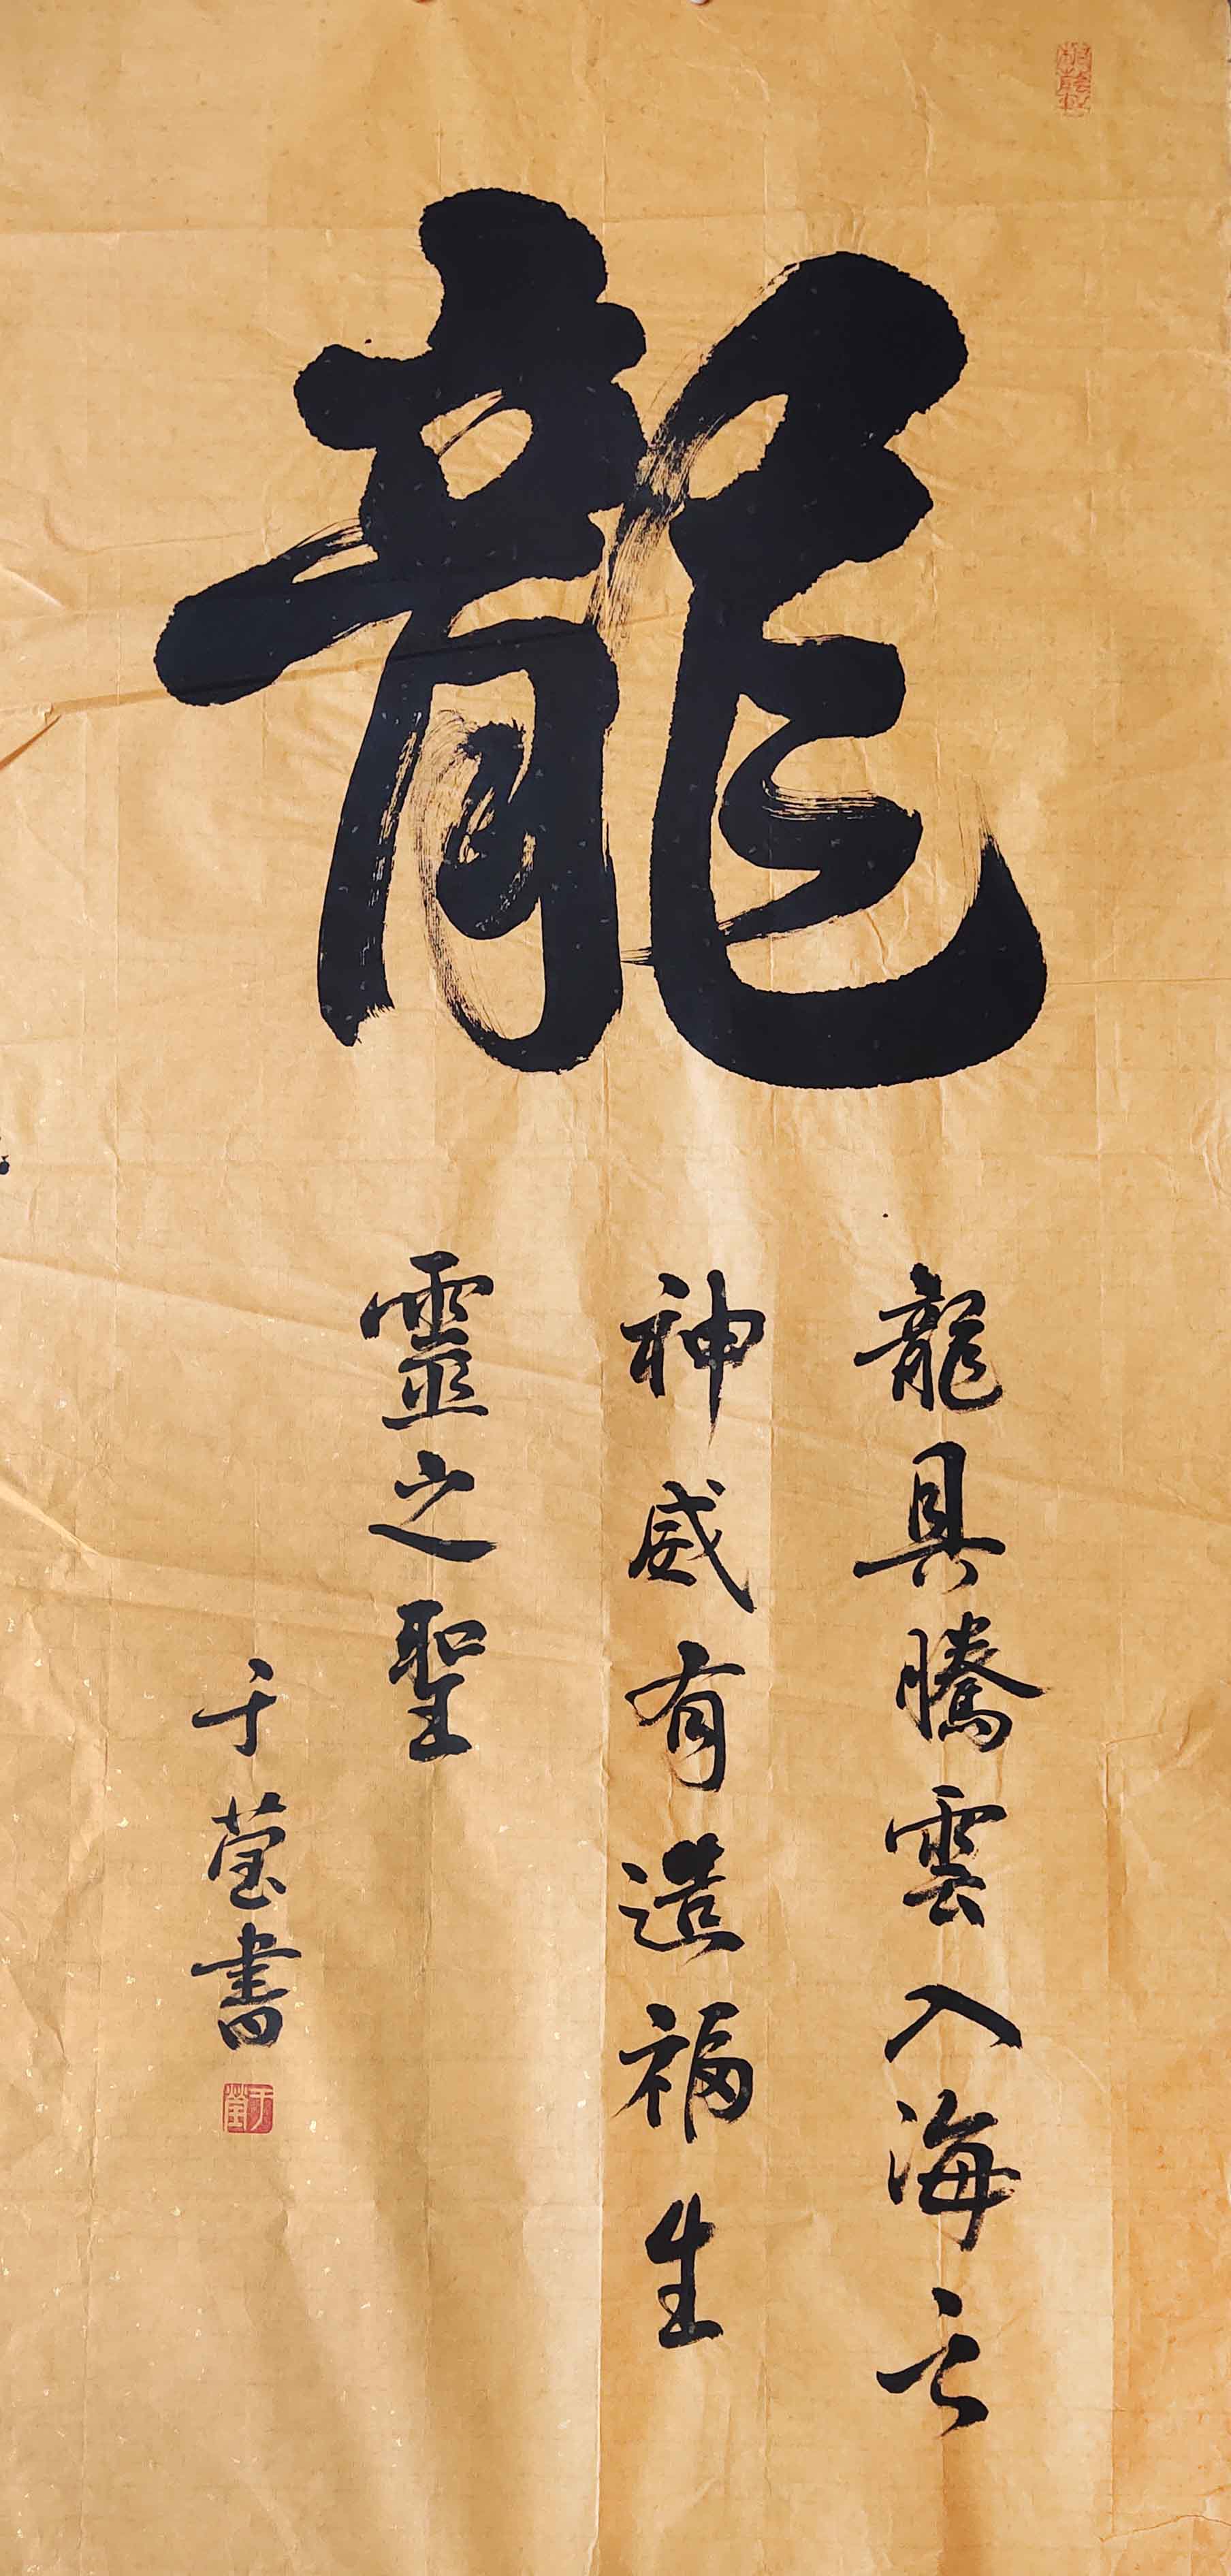 龍
龍具騰雲入海之
神威有造福生
靈之聖
于瑩書
于瑩